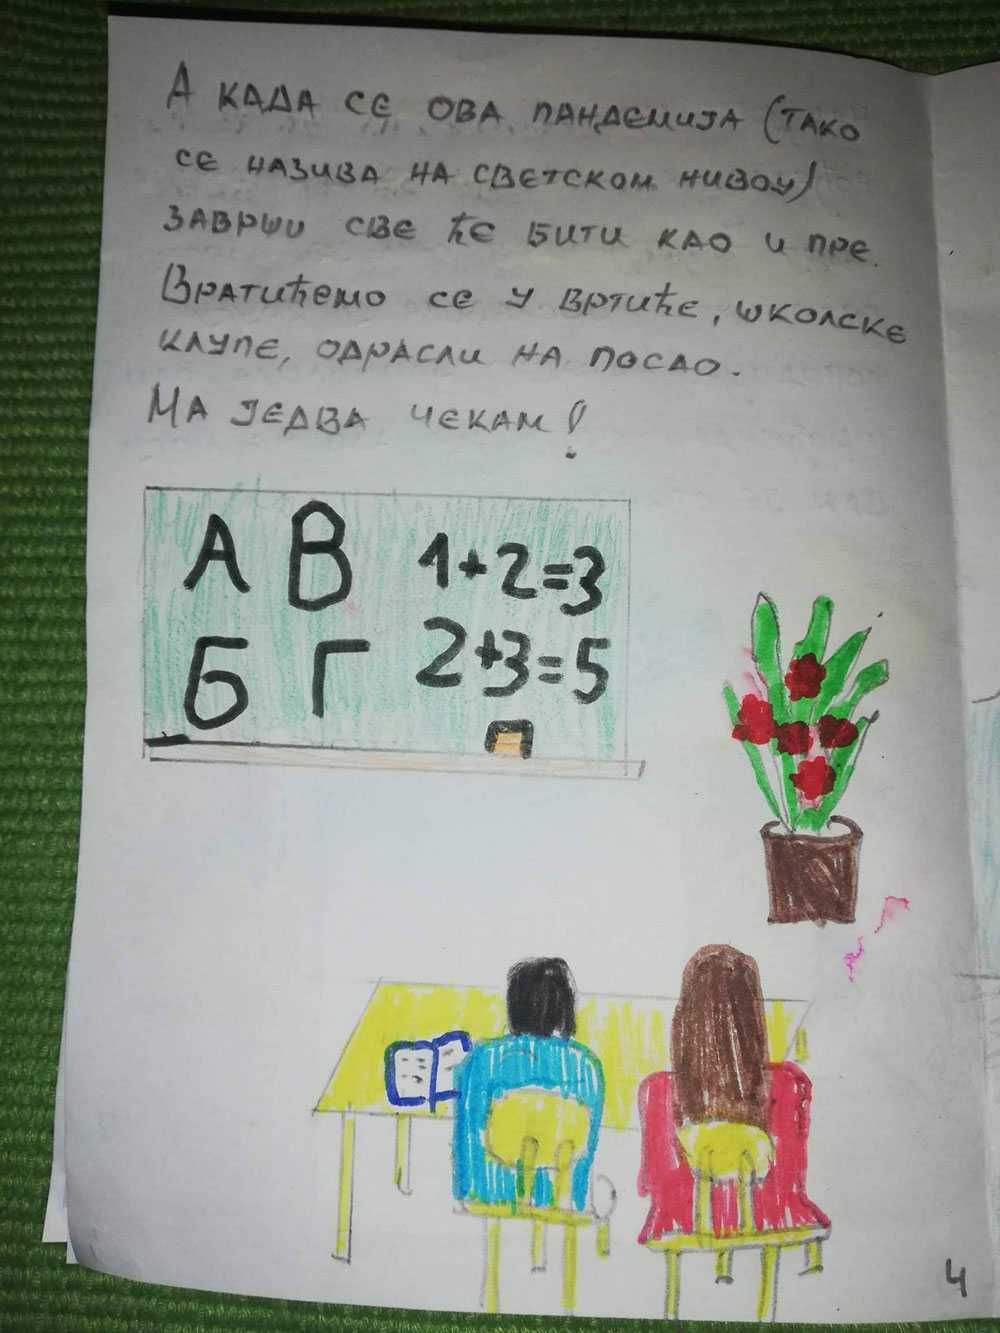 А КАДА СЕ ОВА ПАНДЕМИЈА (ТАКО
СЕ НАЗИВА НА СВЕТСКОМ НИВОУ)
ЗАВРШИ СВЕ ЋЕ БИТИ КАО И ПРЕ.
ВРАТИЋЕМО СЕ У ВРТИЋЕ, ШКОЛСКЕ
КЛУПЕ, ОДРАСЛИ НА ПОСАО.
МА ЈЕДВА ЧЕКАМ!
А В 1+2=3
Б Г 2+3=5
4